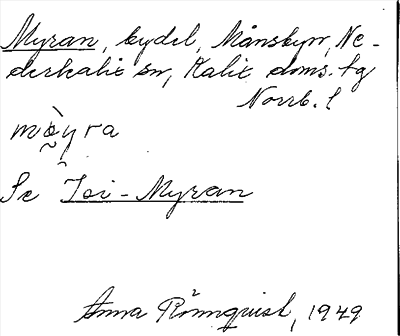 Myran, bydel, Månsbyn, Ne-
derkalix sn, Kalix doms. tg
Norrb. l
mo᷈̀yra
Se Isi-Myran
Anna Rönnquist, 1949